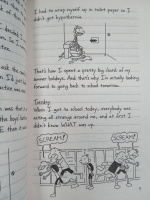 I had to wrap myself up in toilet paper so I
didn't get hypothermia.
That's how I spent a pretty big chunk of my
summer holidays. And that's why I'm actually looking
forward to going back to school tomorrow.
Tuesday
When I got to school today, everybody was
acting all strange around me, and at first I
didn't know WHAT was up.
SCREAM!
SCREAM!